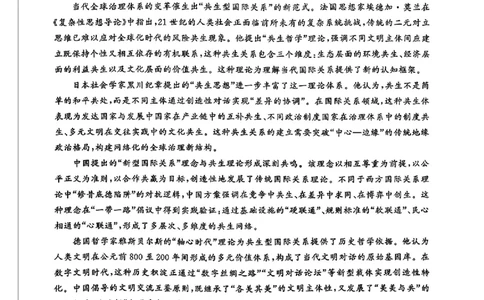 当代全球治理体系的变革催生出“共生型国际关系”的新范式。法国思想家埃德加·莫兰在
《复杂性思想导论》中指出,21世纪的人类社会正面临前所未有的复杂系统挑战,传统的二元对立
思维已难以应对全球化时代的风险共生现象。他提出“共生哲学”理论,强调不同文明主体间应建
立既保持个性又相互依存的有机联系,这种共生关系包含三个维度:生态层面的环境共生、经济层
面的利益共生以及文化层面的价值共生。这种理论为理解当代国际关系提供了新的认知框架。
日本社会学家黑川纪章提出的“共生思想”进一步丰富了这一理论体系。他认为,共生不是简
单的和平共处,而是不同主体通过创造性对话实现“差异的协调”。在国际关系领域,这种共生体
表现为发达国家与发展中国家在产业链中的互补共生、不同政治制度国家在治理体系中的制度共
生、多元文明在交往实践中的文化共生。这种共生关系的建立需要突破“中心—边缘”的传统地缘
政治格局,构建网络化的全球治理新结构。
中国提出的“新型国际关系”理念与共生理论形成深刻共鸣。该理念以相互尊重为前提,以公
平正义为准则,以合作共赢为目标,创造性地发展了传统国际关系理论。不同于西方国际关系理
论中“修昔底德陷阱”的对抗逻辑,中国方案强调在竞争中共生、在差异中求同、在博弈中创生。这
种理念在“一带一路”倡议中得到实践验证:通过基础设施的“硬联通”、规则标准的“软联通”、民心
相通的“心联通”,形成了多层次、多维度的共生网络。
德国哲学家雅斯贝尔斯的“轴心时代”理论为共生型国际关系提供了历史哲学依据。他认为
人类文明在公元前800至200年间形成的多元价值体系,构成了当代文明对话的原始基因库。在
数字文明时代,这种历史积淀正通过“数字丝绸之路”“文明对话论坛”等新型载体实现创造性转
化。中国倡导的文明交流互鉴原则,既继承了“各美其美”的文明主体性,又发展了“美美与共”的